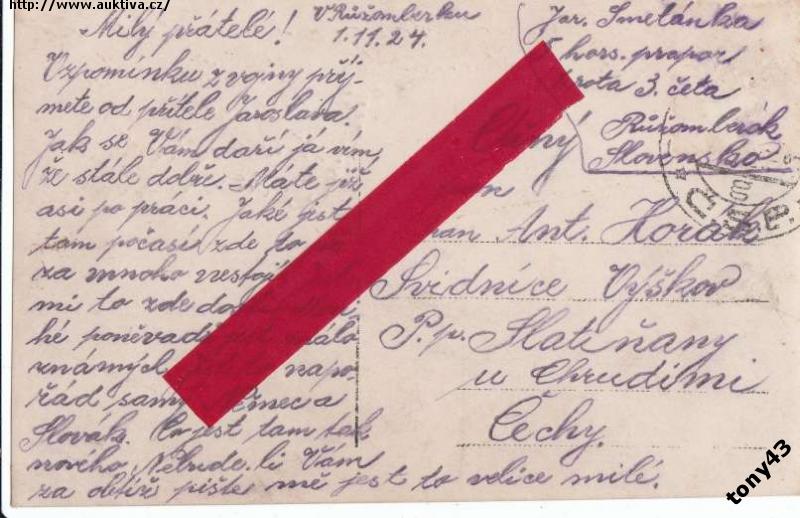 http://www.auktiva.cz/
Milý přátelé! V Růžomberku
1.11.24.
Vzpomínku z vojny při-
mete od přítele Jaroslava.
Jak se Vám daří já vím,
že stále dobře. Máte již
asi po práci. Jaké jest
tam počasí zde to
za mnoho nestojí.
mi to zde
hé poněvadž málo
známých. napo-
řád samý Němec a
Slovák. Co jest tam tak
nového. Nebude-li Vám
za obtíž pište mě jest to velice milé.
Jar. Smetánka
5 hors. prapor
rota 3. četa
Růžomberok
Slovensko
Ant. Horák
Svidnice Výškov
P.p. Slatiňany
u Chrudimi
Čechy.
tony43